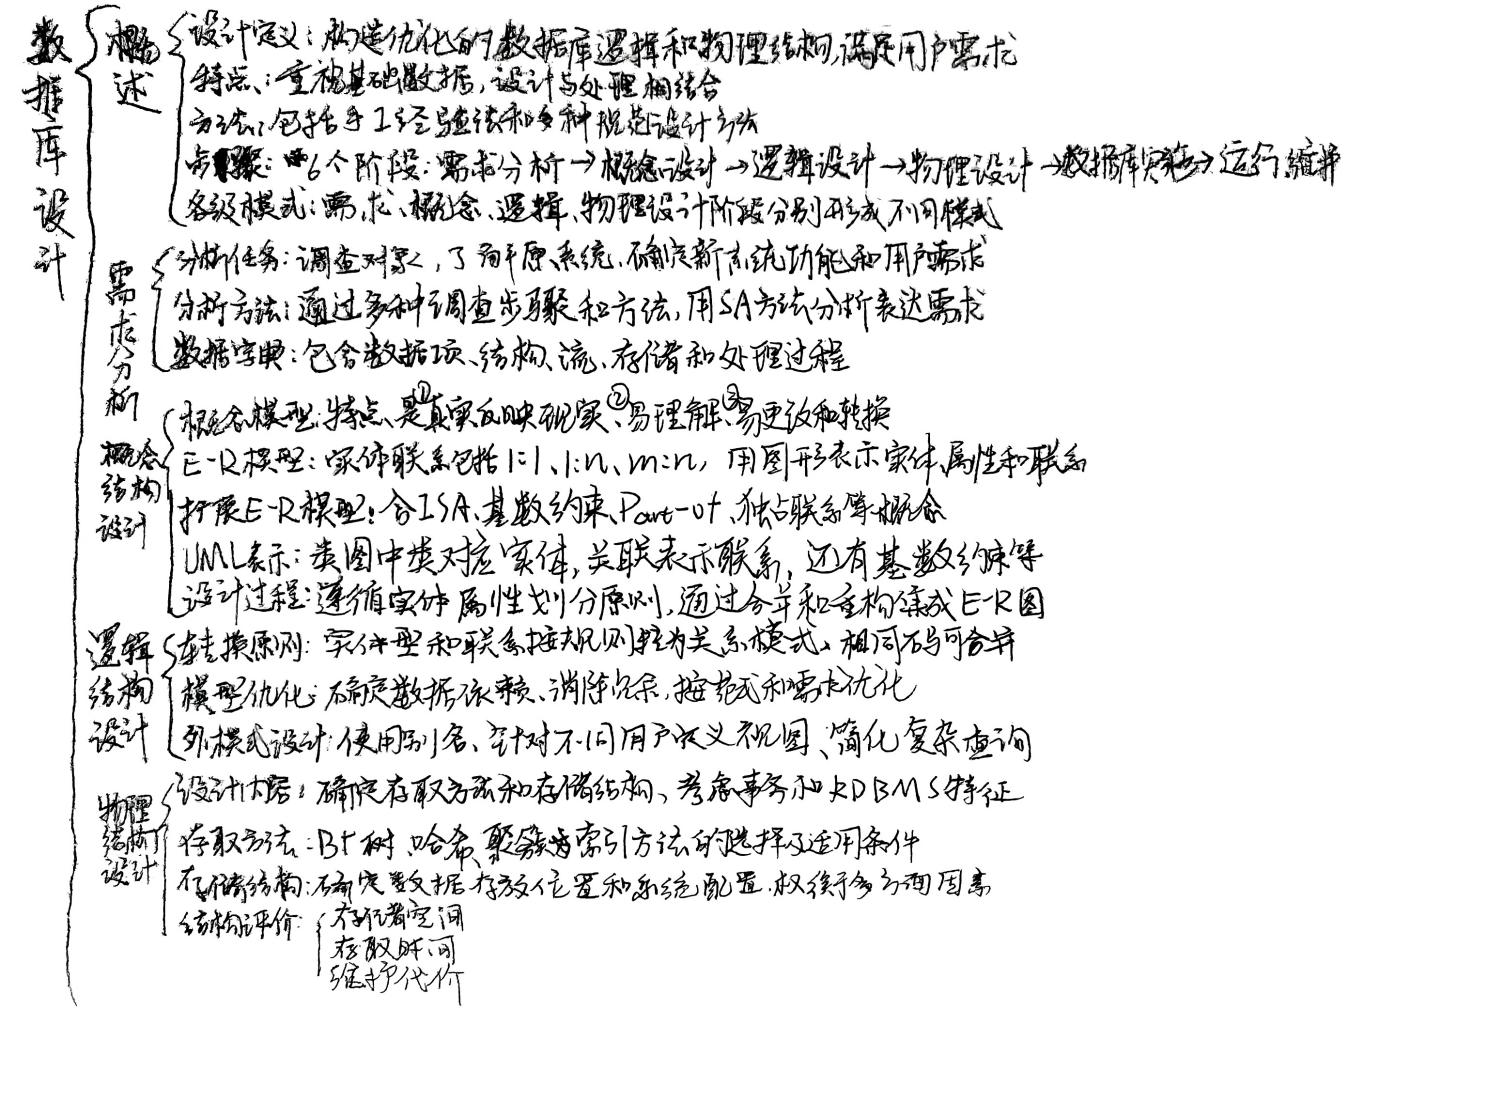 数据库设计
概述
设计定义：构造优化的数据库逻辑和物理结构，满足用户需求
特点：重视基础数据，设计与处理相结合
方法：包括手工经验法和多种规范设计方法
步骤：6个阶段：需求分析→概念设计→逻辑设计→物理设计→数据库实施→运行维护
各级模式：需求、概念、逻辑、物理设计阶段分别形成不同模式
需求分析
分析任务：调查对象，了解原系统、确定新系统功能和用户需求
分析方法：通过多种调查步骤和方法，用SA方法分析表达需求
数据字典：包含数据项、结构、流、存储和处理过程
概念结构设计
概念模型：特点、是①真实反映现实、②易理解、③易更改和转换
E-R模型：实体联系包括1:1、1:n、m:n，用图形表示实体、属性和联系
扩展E-R模型：含ISA、基数约束、Part-of、独占联系等概念
UML表示：类图中类对应实体，关联表示联系，还有基数约束等
设计过程：遵循实体属性划分原则，通过合并和重构集成E-R图
逻辑结构设计
转换原则：实体型和联系按规则转为关系模式、相同码可合并
模型优化：确定数据依赖、消除冗余，按范式和需求优化
外模式设计：使用别名、针对不同用户定义视图、简化复杂查询
物理结构设计
设计内容：确定存取方法和存储结构、考虑事务和RDBMS特征
存取方法：B+树、哈希、聚簇索引方法的选择及适用条件
存储结构：确定数据存放位置和系统配置，权衡多方面因素
结构评价：
存储空间
存取时间
维护代价